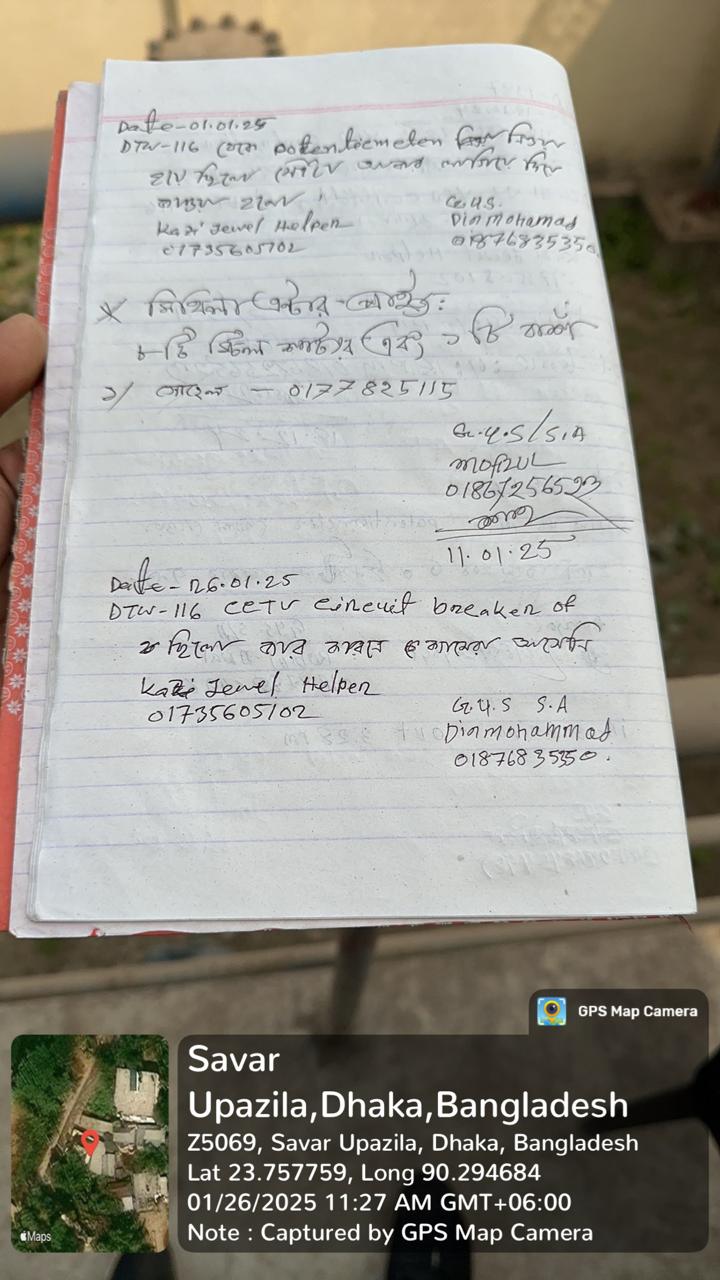 Date-01.01.25
DTW-116 potentiemeter
ছিলো
হলো
Kazi Jewel Helper
01735605102
G.U.S.
Dinmohamad
01876835350
* মিথিলা এন্টার-প্রাইজ:
৮টি স্টিল এবং ১ টি
১/ সোহেল - 0177825115
G.U.S/S.A
MOFIZUL
01867256523
11.01.25
Date-26.01.25
DTW-116 CCTV circuit breaker of
ছিলো যার কারনে আসেনি
Kazi Jewel Helper
01735605102
G.U.S S.A
Dinmohammad
01876835350.
GPS Map Camera
Savar
Upazila,Dhaka,Bangladesh
Z5069, Savar Upazila, Dhaka, Bangladesh
Lat 23.757759, Long 90.294684
01/26/2025 11:27 AM GMT+06:00
Note : Captured by GPS Map Camera
Maps